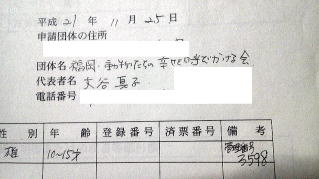 平成 21 年 11 月 25 日
申請団体の住所
団体名 福岡・動物たちの幸せを呼びかける会
代表者名 大谷 真子
電話番号
性 別 年 齢 登録番号 済票番号 備 考
雄 10~15才 管理番号
3598